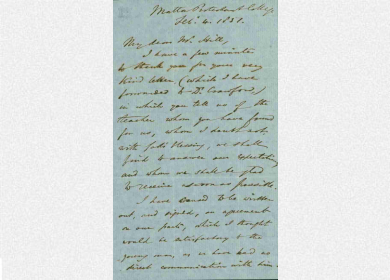 Malta Protestant College
Feb. 4. 1851.
My dear Mr. Hill,
I have a few minutes
to thank you for your very
kind letter (which I have
forwarded to Dr. Crawford)
in which you tell us of the
teacher whom you have found
for us, whom I doubt not,
with God's blessing, we shall
find to answer our expectations
and whom we shall be glad
to receive as soon as possible.
I have caused to be written
out, and signed, an agreement
on our part, which I thought
would be satisfactory to the
young man, as we have had no
direct communication with him